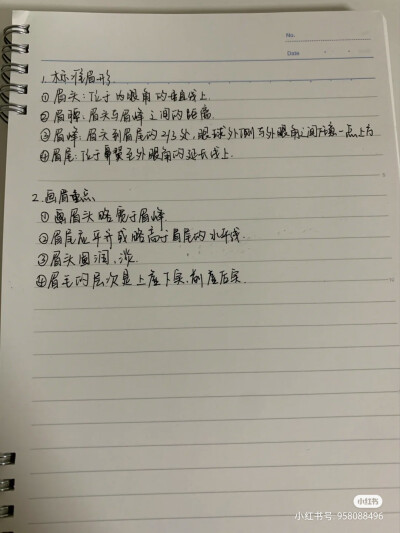 No.
Date
1.标准眉形.
①眉头:位于内眼角的垂直线上.
②眉腰:眉头与眉峰之间的距离.
③眉峰:眉头到眉尾的2/3处,眼球外侧与外眼角之间任意一点上方
④眉尾:位于鼻翼至外眼角的延长线上.
2.画眉重点
①画眉头略宽于眉峰.
②眉尾应平齐或略高于眉尾的水平线.
③眉头圆润,淡.
④眉毛的层次是上虚下实,前虚后实.
小红书
小红书号:958088496